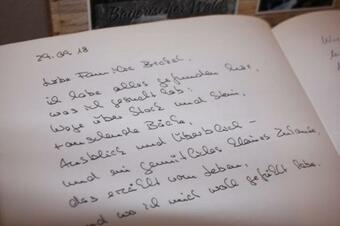 Bayerischer Wald
29.09.18
Liebe Familie
ich habe alles gefunden hier,
was ich gesucht hab:
Wege über Stock und Stein,
rauschende Bäche,
Ausblick und Überblick –
und ein gemütliches kleines Zuhause,
das erzählt vom Leben,
und wo ich mich wohl gefühlt habe.